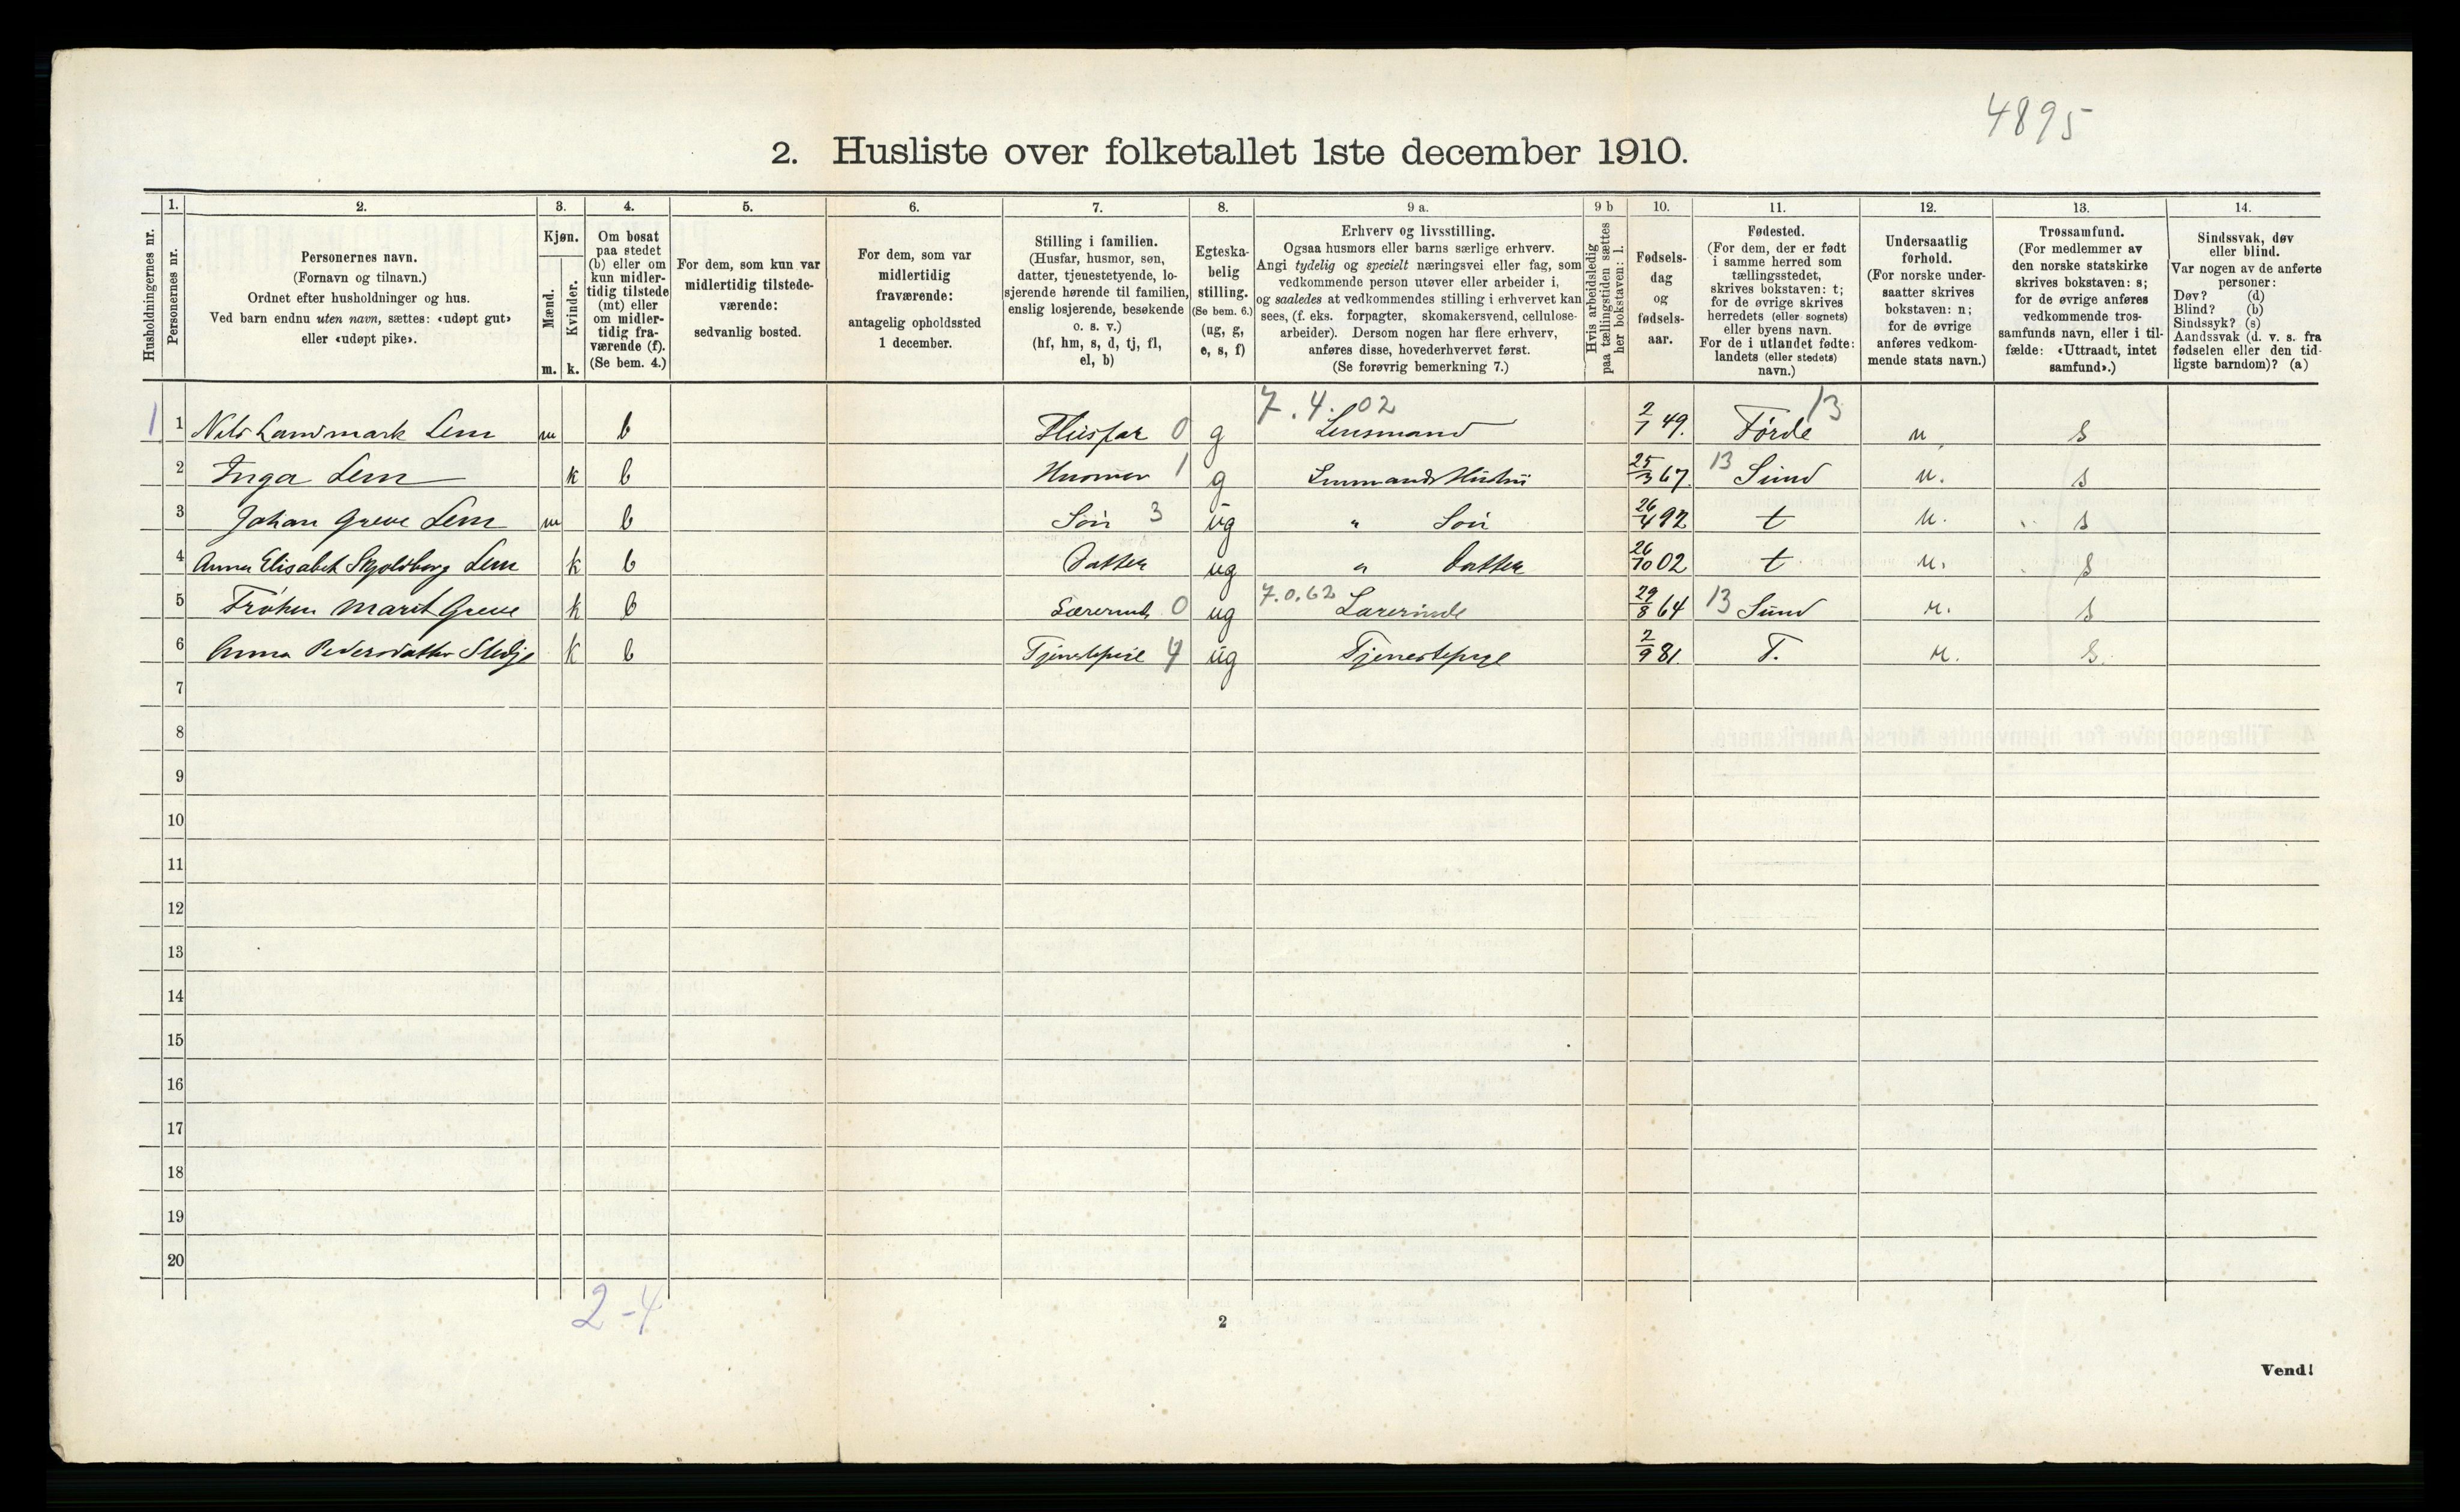 4895
2. Husliste over folketallet 1ste december 1910.
Husholdningernes nr.
1.
Personernes nr.
2.
Personernes navn.
(Fornavn og tilnavn.)
Ordnet efter husholdninger og hus.
Ved barn endnu uten navn, sættes: «udøpt gut»
eller «udøpt pike».
3.
Kjøn.
Mænd.
Kvinder.
m. k.
4.
Om bosat
paa stedet
(b) eller om
kun midler-
tidig tilstede
(mt) eller
om midler-
tidig fra-
værende (f).
(Se bem. 4.)
5.
For dem, som kun var
midlertidig tilstede-
værende:
sedvanlig bosted.
6.
For dem, som var
midlertidig
fraværende:
antagelig opholdssted
1 december.
7.
Stilling i familien.
(Husfar, husmor, søn,
datter, tjenestetyende, lo-
sjerende hørende til familien,
enslig losjerende, besøkende
o. s. v.)
(hf, hm, s, d, tj, fl,
el, b)
8.
Egteska-
belig
stilling.
(Se bem. 6.)
(ug, g,
e, s, f)
9 a.
Erhverv og livsstilling.
Ogsaa husmors eller barns særlige erhverv.
Angi tydelig og specielt næringsvei eller fag, som
vedkommende person utøver eller arbeider i,
og saaledes at vedkommendes stilling i erhvervet kan
sees, (f. eks. forpagter, skomakersvend, cellulose-
arbeider). Dersom nogen har flere erhverv,
anføres disse, hovederhvervet først.
(Se forøvrig bemerkning 7.)
9 b
Hvis arbeidsledig
paa tællingstiden sættes
her bokstaven: l.
10.
Fødsels-
dag
og
fødsels-
aar.
11.
Fødested.
(For dem, der er født
i samme herred som
tællingsstedet,
skrives bokstaven: t;
for de øvrige skrives
herredets (eller sognets)
eller byens navn.
For de i utlandet fødte:
landets (eller stedets)
navn.)
12.
Undersaatlig
forhold.
(For norske under-
saatter skrives
bokstaven: n;
for de øvrige
anføres vedkom-
mende stats navn.)
13.
Trossamfund.
(For medlemmer av
den norske statskirke
skrives bokstaven: s;
for de øvrige anføres
vedkommende tros-
samfunds navn, eller i til-
fælde: «Uttraadt, intet
samfund».)
14.
Sindssvak, døv
eller blind.
Var nogen av de anførte
personer:
Døv? (d)
Blind? (b)
Sindssyk? (s)
Aandssvak (d. v. s. fra
fødselen eller den tid-
ligste barndom)? (a)
7.4.02 13
1 1 Nils Landmark Lem m b Husfar 0 g Lensmand 2/7 49. Førde n s
2 Inga Lem k b Husmor 1 g Lensmands Hustru 25/3 67. 13 Sund n. s
3 Johan Greve Lem m b Søn 3 ug " Søn 26/4 92 t n. s
4 Anna Elisabet Skjoldborg Lem k b Datter ug " Datter 26/10 02 t n. s
5 Frøken Marit Greve k b Lærerinde 0 ug 7.0.62 Lærerinde 29/8 64 13 Sund n. s
6 Anna Pedersdatter Stedje k b Tjenestepige 4 ug Tjenestepige 2/9 81. T. n. s.
7
8
9
10
11
12
13
14
15
16
17
18
19
20
2-4
2
Vend!